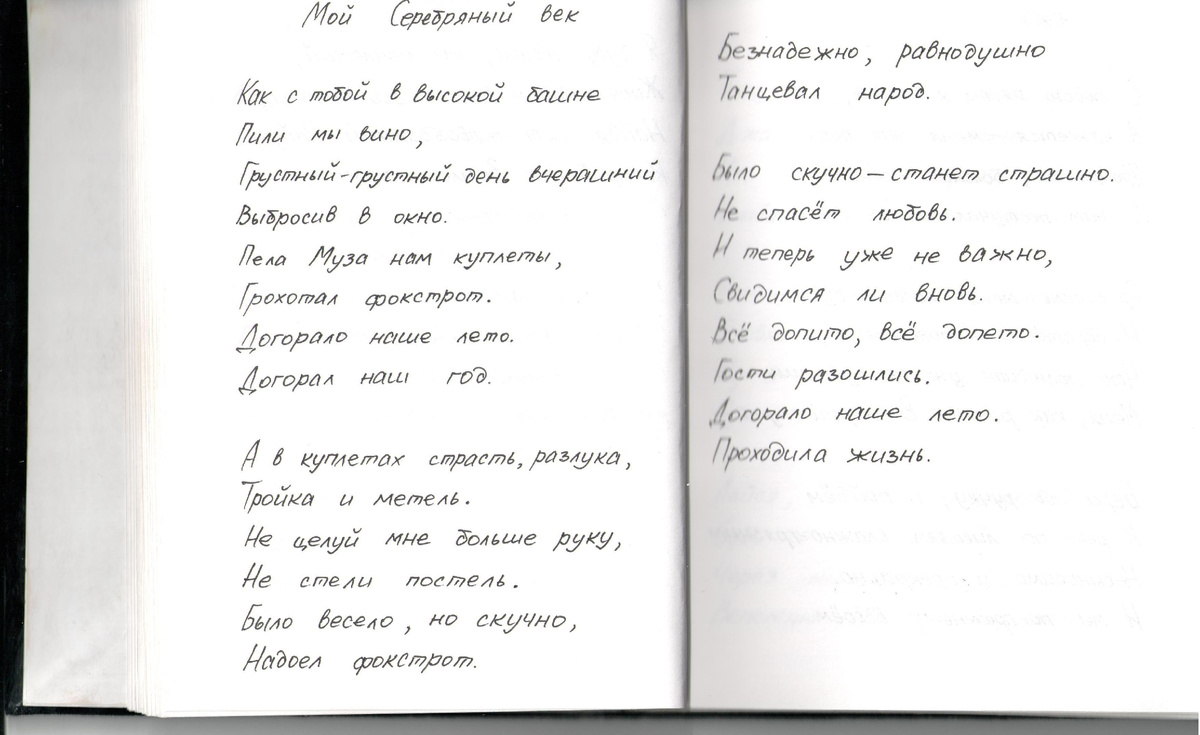 Мой Серебряный век
Как с тобой в высокой башне
Пили мы вино,
Грустный-грустный день вчерашний
Выбросив в окно.
Пела Муза нам куплеты,
Грохотал фокстрот.
Догорало наше лето.
Догорал наш год.
А в куплетах страсть, разлука,
Тройка и метель.
Не целуй мне больше руку,
Не стели постель.
Было весело, но скучно,
Надоел фокстрот.
Безнадежно, равнодушно
Танцевал народ.
Было скучно – станет страшно.
Не спасёт любовь.
И теперь уже не важно,
Свидимся ли вновь.
Всё допито, всё допето.
Гости разошлись.
Догорало наше лето.
Проходила жизнь.